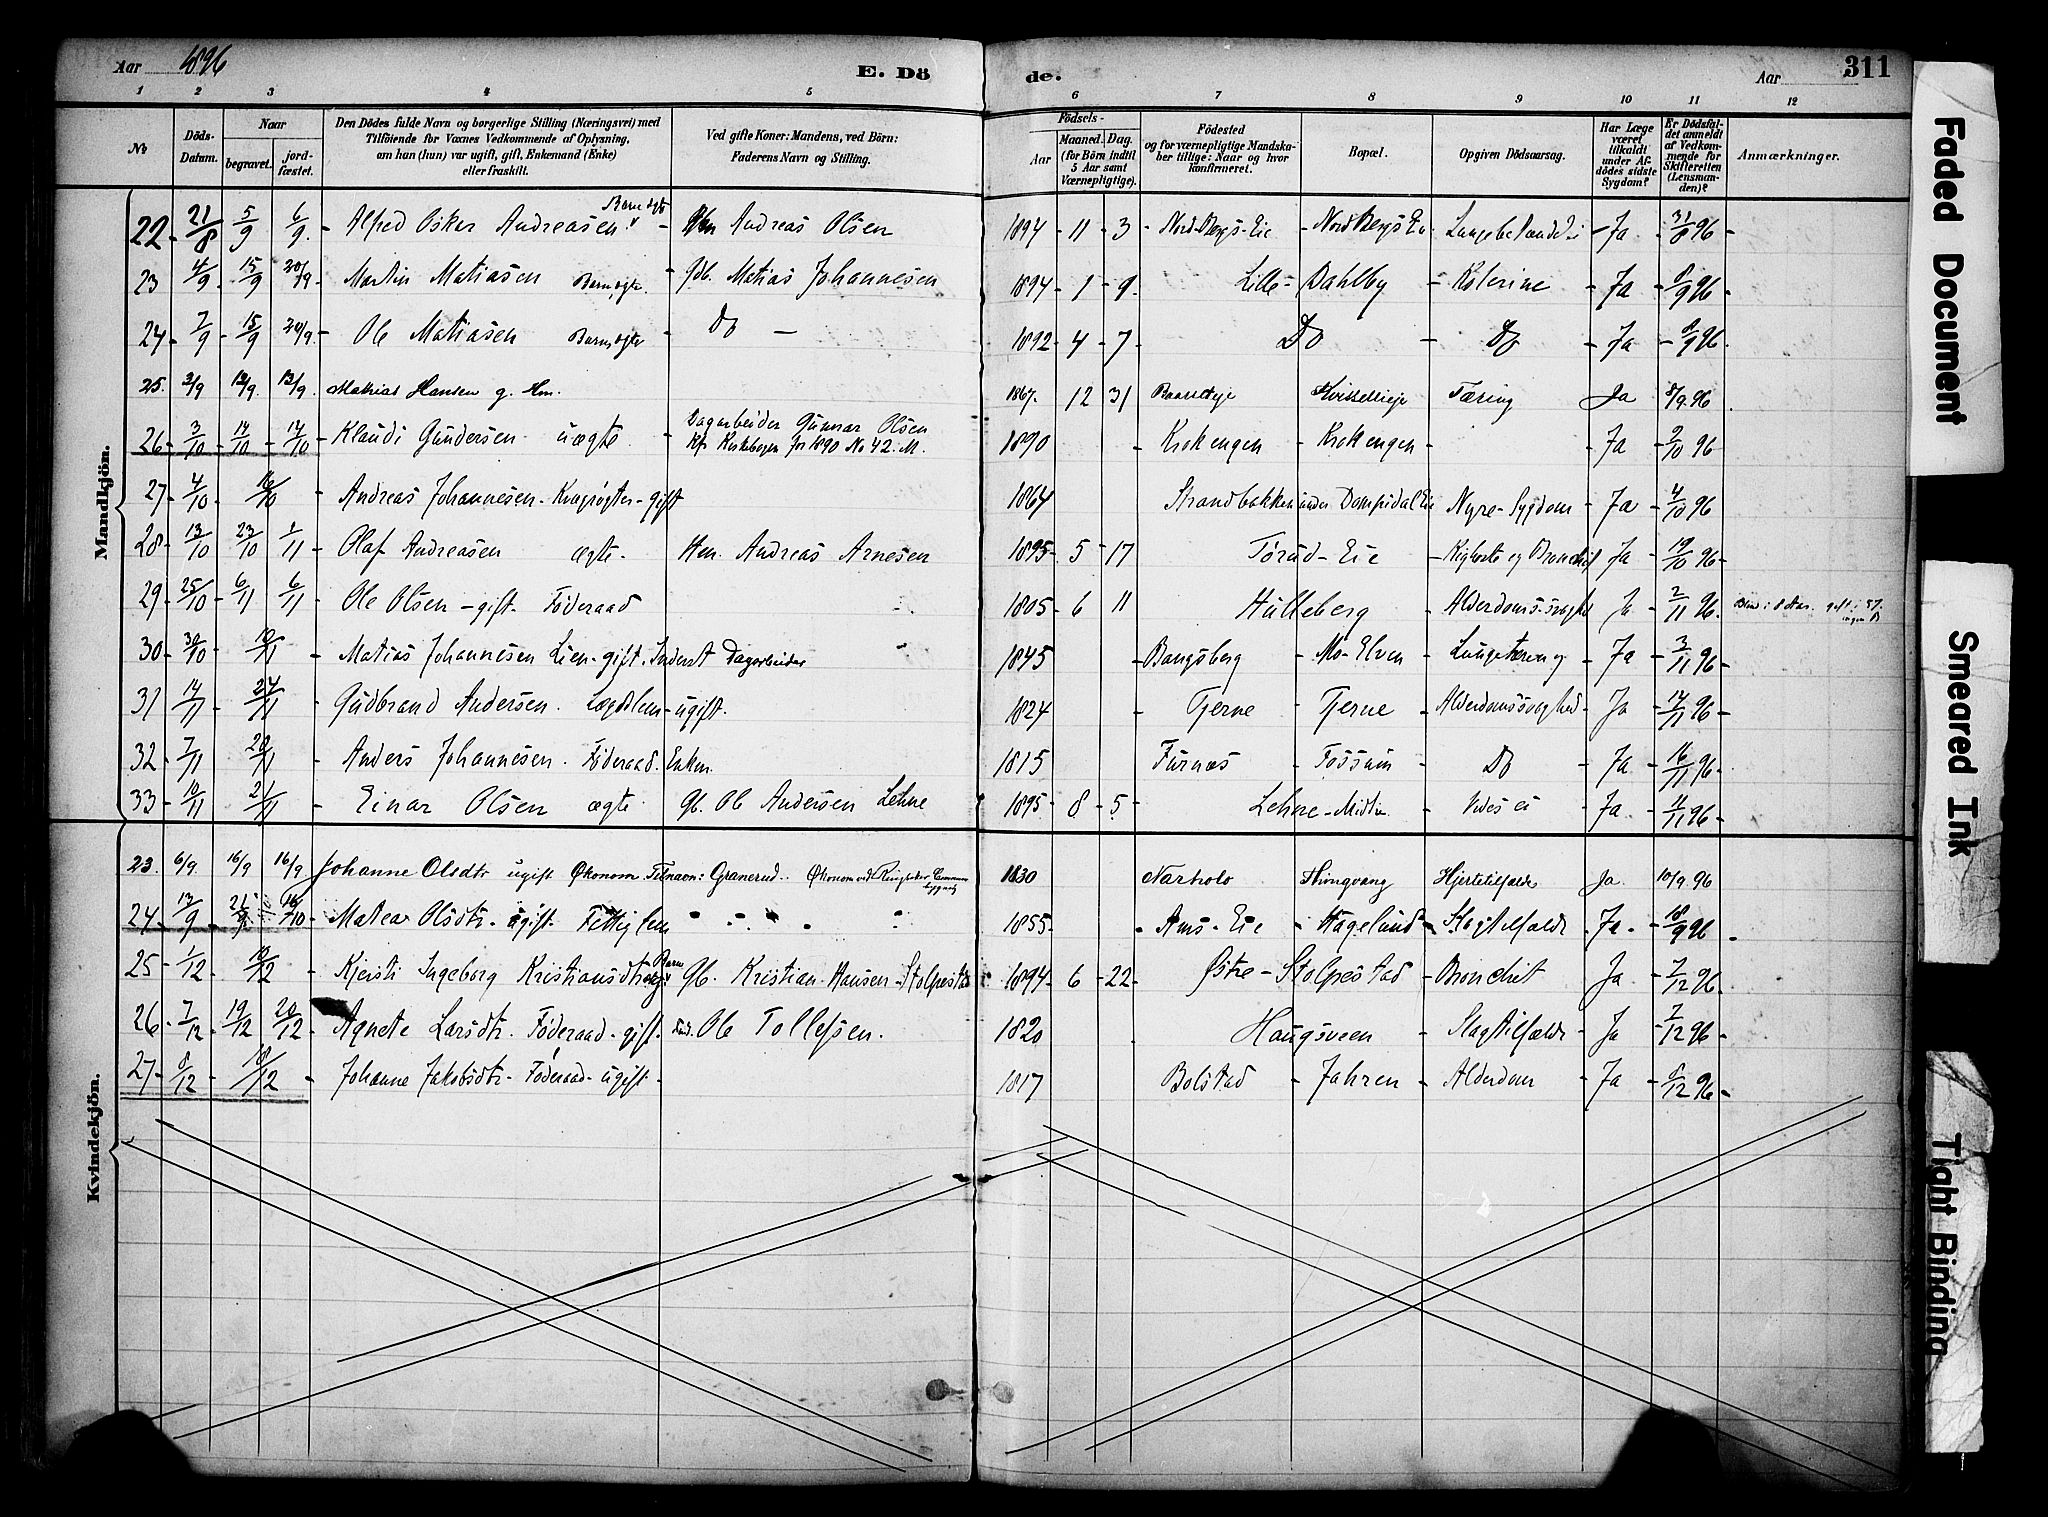 Aar 1896
E. Dö
de.
Aar
311
1 2 3 4 5 6 7 8 9 10 11 12
No
Döds-Datum.
Naar
begravet.
jord-fæstet.
Den Dödes fulde Navn og borgerlige Stilling (Næringsvei) med
Tilföiende for Voxnes Vedkommende af Oplysning,
om han (hun) var ugift, gift, Enkemand (Enke)
eller fraskilt.
Ved gifte Koner: Mandens, ved Börn:
Faderens Navn og Stilling.
Födsels-
Aar
Maaned. Dag.
(for Börn indtil
5 Aar samt
Værnepligtige).
Födested
og for værnepligtige Mandska-
ber tillige: Naar og hvor
konfirmeret.
Bopæl.
Opgiven Dödsaarsag.
Har Læge
været
tilkaldt
under Af-
dödes sidste
Sygdom?
Er Dödsfal-
det anmeldt
af Vedkom-
mende for
Skifteretten
(Lensman-
den)?
Anmærkninger.
Mandkjön.
22 - 21/8 5/9 6/9. - Alfred Oskar Andreasen Barn ægte - Andreas Olsen 1894 - 11 - 3 - Nord-Bergs-Eie - Nord Bergs Eie - Ja - 31/8 96 -
23 4/9 - 15/9 20/9 - Martin Matiasen Barn, ægte. - Gdb. Matias Johannesen 1894 - 1 - 9 - Lille - Dahlby - Kolerine - Ja - 9/9 96 -
24 - 7/9 - 15/9 - 20/9. - Ole Matiasen Barn, ægte - Do - 1892 - 4 - 7 - Do - Do - Ja - 9/9 96
25. 3/9 12/9. 13/9. Mathias Hansen g. Hm. 1867. 12 31 Tæring Ja 8/9. 96
26 - 3/10 - 14/10 - 14/10 - Klaudi Gundersen uægte - Dagarbeider Gunnar Olsen
Kfr. Kirkebogen for 1890 No 42. M. 1890 - Krokengen - Krokengen - Ja - 9/10 96
27 - 4/10 - 16/10 - Andreas Johannesen - Kvægrögter - gift 1864 Strandbakken under Dompidal Eie Nyre-Sygdom - Ja - 4/10 96
28 - 13/10 - 23/10 1/11 - Olaf Andreasen ægte - Hm. Andreas Arnesen 1895 - 5 - 17 - Törud - Eie - Kighoste og Bronchit Ja - 19/10 96 -
29 - 25/10 - 6/11 6/11 - Ole Olsen - gift - Föderaad 1805 - 6 11 Hulleberg - Alderdoms-svaghed Ja - 2/11 96 -
30 - 30/10 - 10/11 - Matias Johannesen Lien - gift. Inderst Dagarbeider 1845 - Bangsberg - Mo-Elven - Lungetæring - Ja - 3/11 96 -
31 - 14/11 - 24/11 - Gudbrand Andersen. Lægdslem - ugift. 1824 - Tjerne - Tjerne - Alderdomssvaghed - Ja - 14/11 96 -
32 - 7/11 - 20/11 - Anders Johannesen - Föderaad. Enkem. 1815 - Furnæs - Fossum - Do - Ja - 16/11 96 -
33 - 10/11 - 21/11 - Einar Olsen ægte - Gb. Ole Andersen Lehne 1895 - 8 - 5 - Lehne - Midtre - Vides ei - Ja - 11/11 96 -
Kvindekjön.
23. 6/9. 16/9 16/9 Johanne Olsdtr ugift Økonom. Tilnavn: Granerud.. Økonom ved Ringsaker 1830 Narholo Hjertetilfælde Ja 10/9 96
24 - 13/9 - 21/9 - 18/10 - Matea Olsdtr - ugift - Fattiglem 1855 - Ams - Eie - Hagelund - Slagtilfælde - Ja - 18/9 96 -
25 - 1/12 - 10/12 - Kjersti Ingeborg Kristiansdtr Barn - Gb. Kristian Hansen - Stolpestad 1894 - 6 - 22 - Østre - Stolpestad - Bronchit - Ja - 7/12 96 -
26 - 7/12 19/12 20/12 - Agnete Larsdtr. Föderaad - gift - Ole Tollefsen. 1820 Haugsveen - Slagtilfælde - Ja - 7/12 96 -
27 - 8/12 - 18/12 - Johanne Jakobsdtr - Föderaad - ugift - 1817 - Bolstad - Jahren - Alderdom - Ja - 8/12 96 -
Faded Document
Smeared Ink
Tight Binding